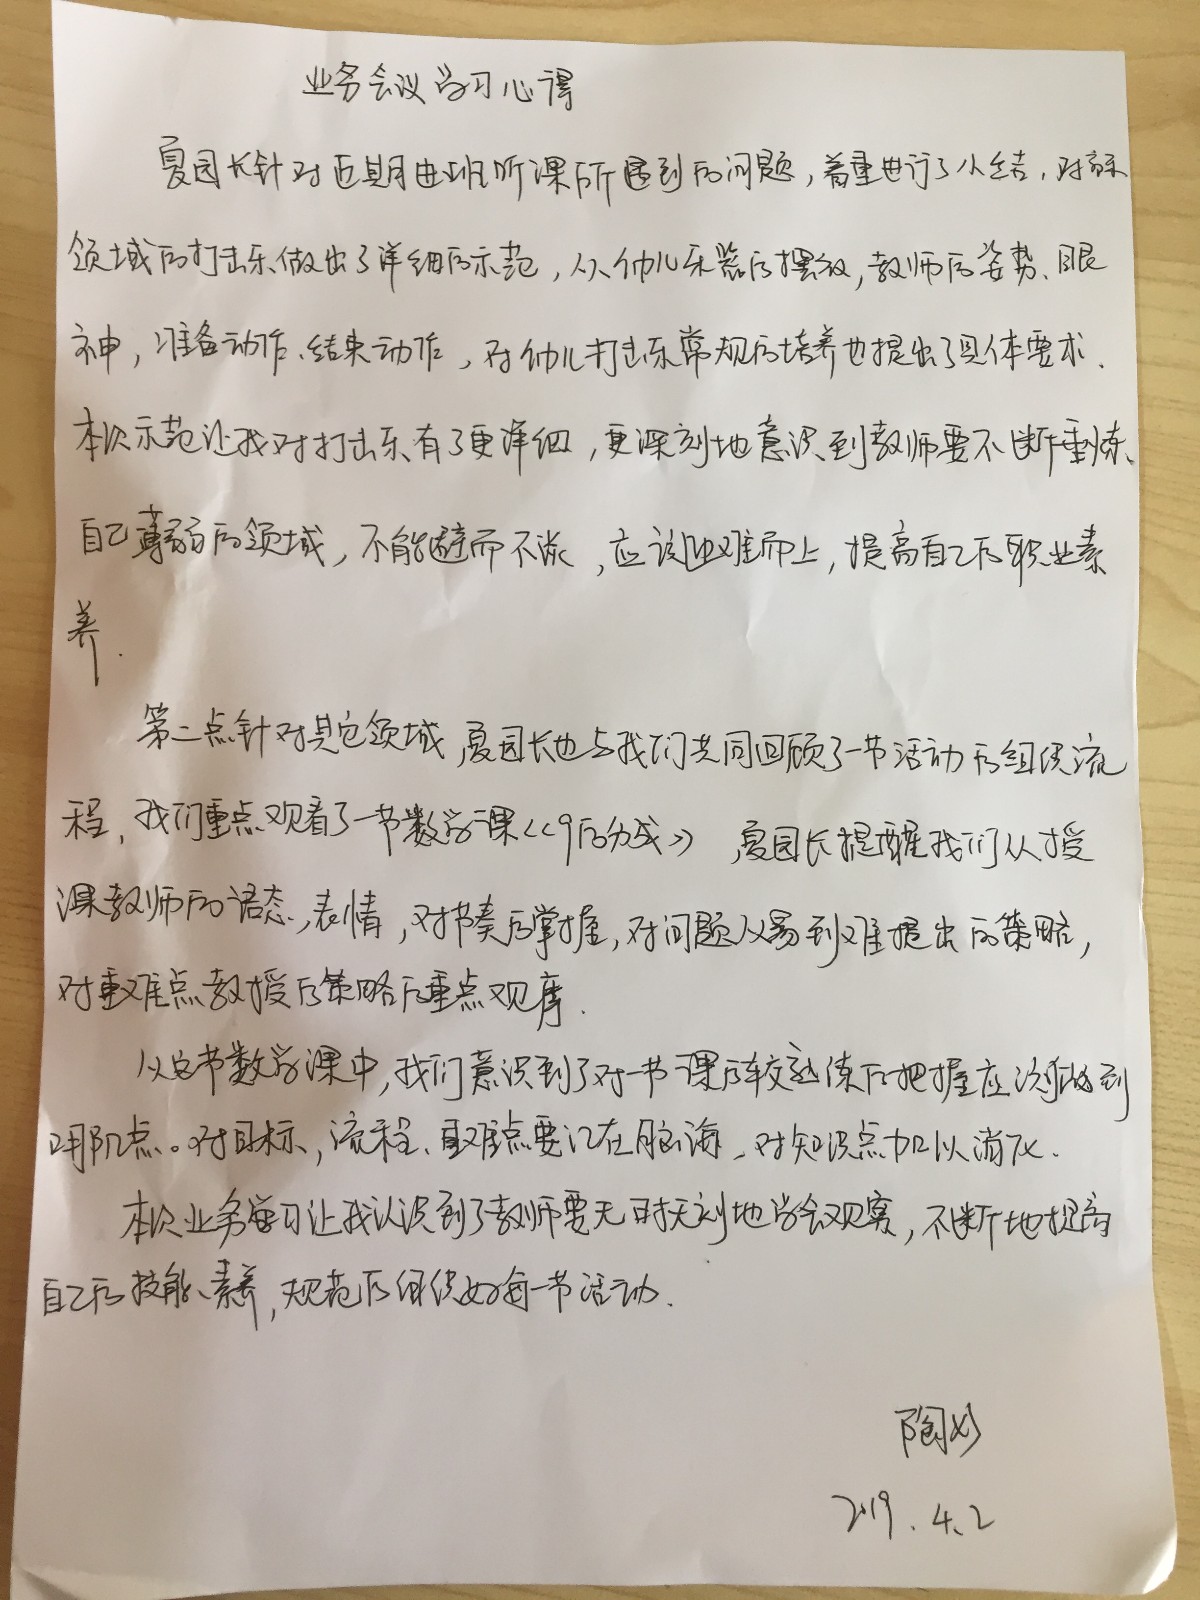 业务会议学习心得
夏园长针对近期进班听课所遇到的问题，着重进行了小结，对音乐
领域的打击乐做出了详细的示范，从幼儿乐器的摆放，教师的姿势、眼
神，准备动作、结束动作，对幼儿打击乐常规的培养也提出了具体要求.
本次示范让我对打击乐有了更详细，更深刻地意识到教师要不断锤炼
自己薄弱的领域，不能避而不谈，应该迎难而上，提高自己的职业素
养.
第二点针对其它领域，夏园长也与我们共同回顾了一节活动的组织流
程，我们重点观看了一节数学课《9的分成》，夏园长提醒我们从授
课教师的语态、表情，对节奏的掌握，对问题从易到难提出的策略，
对重难点教授的策略的重点观摩.
从这节数学课中，我们意识到了对一节课的较熟练的把握应该做到
明确点。对目标，流程、重难点要记在脑海、对知识点加以消化.
本次业务学习让我认识到了教师要无时无刻地学会观察，不断地提高
自己的技能、素养，规范的组织好每一节活动.
陶
2019.4.2